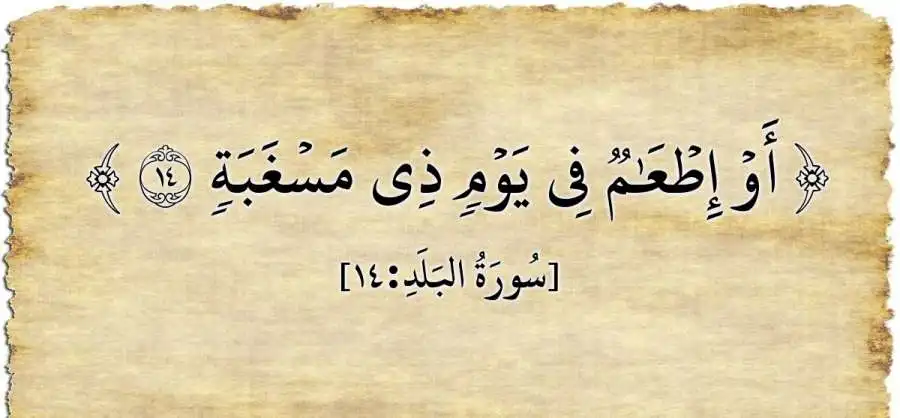 ﴿ أَوْ إِطْعَـٰمٌ فِى يَوْمٍ ذِى مَسْغَبَةٍ ١٤ ﴾
[سُورَةُ البَلَدِ:١٤]